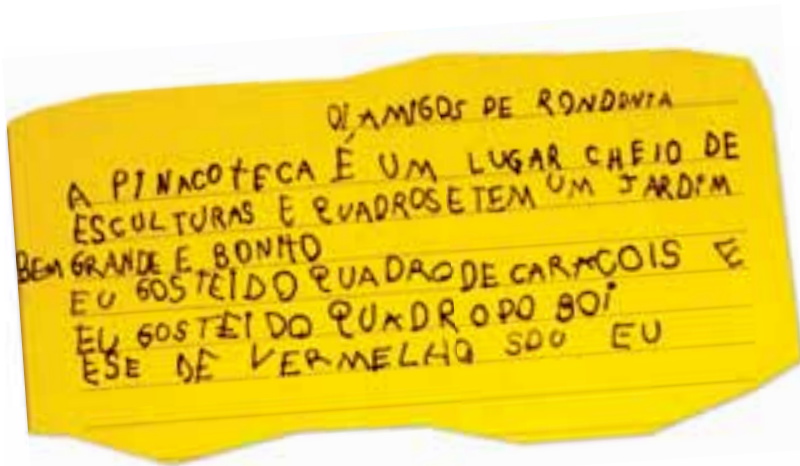 OI AMIGOS DE RONDONIA
A PINACOTECA É UM LUGAR CHEIO DE
ESCULTURAS E QUADROS E TEM UM JARDIM
BEM GRANDE E BONITO
EU GOSTEI DO QUADRO DE CARACOIS E
EU GOSTEI DO QUADRO DO BOI
ESE DE VERMELHO SOU EU